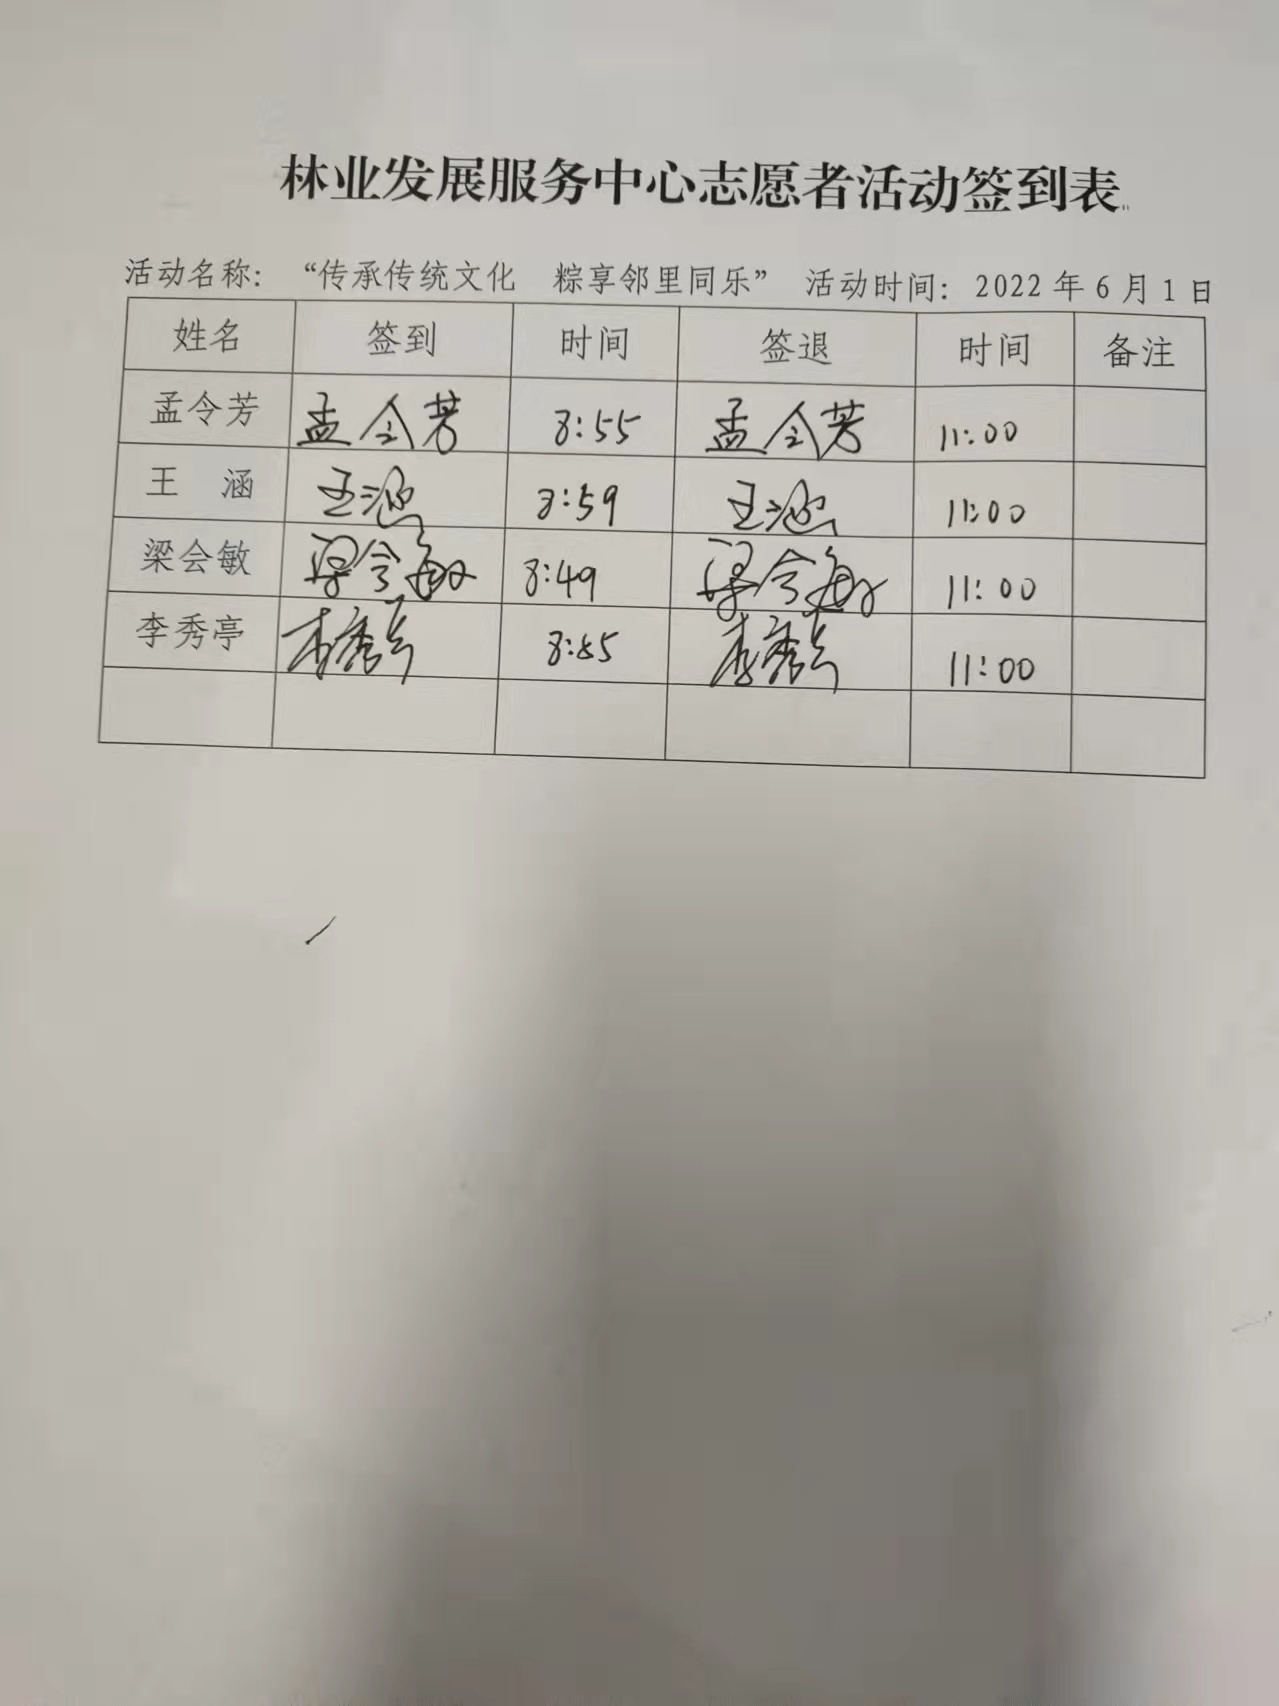 林业发展服务中心志愿者活动签到表
活动名称：“传承传统文化 粽享邻里同乐” 活动时间：2022年6月1日
姓名 签到 时间 签退 时间 备注
孟令芳 孟令芳 8:55 孟令芳 11:00
王 涵 王涵 8:59 王涵 11:00
梁会敏 梁会敏 8:49 梁会敏 11:00
李秀亭 李秀亭 李秀亭 11:00